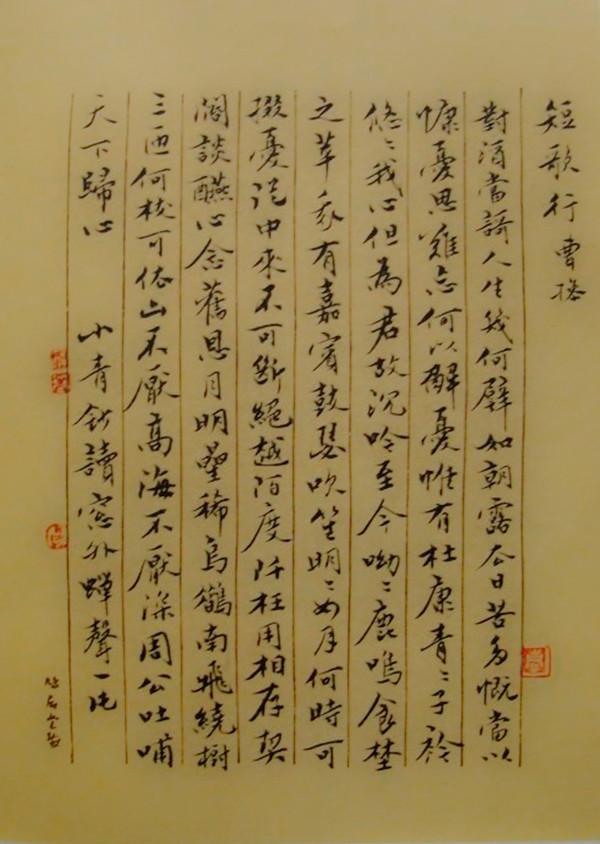 短歌行 曹操
對酒當謌人生幾何譬如朝露去日苦多慨當以
慷憂思難忘何以解憂惟有杜康青〻子衿
悠〻我心但為君故沉吟至今呦〻鹿鳴食埜
之苹我有嘉賓鼓瑟吹笙明〻如月何時可
掇憂從中來不可斷絕越陌度阡枉用相存契
闊談醼心念舊恩月明星稀烏鵲南飛繞樹
三匝何枝可依山不厭高海不厭深周公吐哺
天下歸心 小青鈔讀窓外蟬聲一片